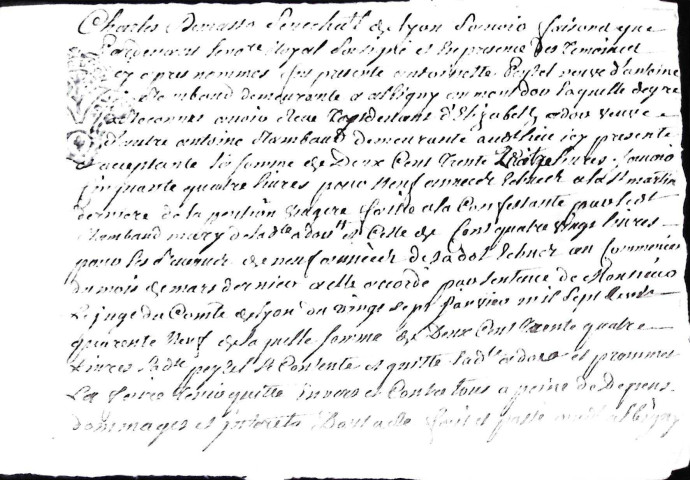 Charles Demasso Senechal de Lyon Scavoir faisons que
Pardevant le no.re Royal Soussigné et En presence des Temoins
cy apres nommés fut presente antoinette Peyzel veuve d'antoine
Flambaud demeurante a albigny au mont dor laquelle de gre
a Reconnu avoir Receu Comptant d'Elizabeth adou veuve
d'autre antoine flambaud demeurante audit lieu icy presente
acceptante la somme de Deux Cent Trente Quatre livres scavoir
Cinquante quatre livres pour Neuf années Echues a la St martin
derniere de la pention viagere faitte a la Confessante par led.t
flambaud mary de lad.te adou et Celle de Cent quatre vingt livres
pour les de neuf années de sa dot Echues au Commencement
du mois de mars dernier a elle accordé par sentence de Monsieur
Le juge du Comté de Lyon du vingt sept Janvier mil Sept Cents
quarente Neuf de la quelle somme de Deux Cent trente quatre
Livres lad.te peyzel Se Contente et quitte lad.te adou et promet
La tenir quitte Envers et Contre tous a peine de Depens
dommages et jnterets Dont acte fait et passé aud.t albigny